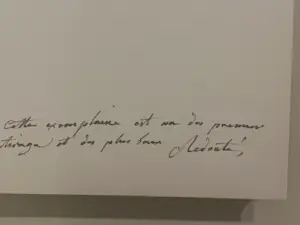 Cette exemplaire est un des premiers
tirage et des plus beau Redouté,